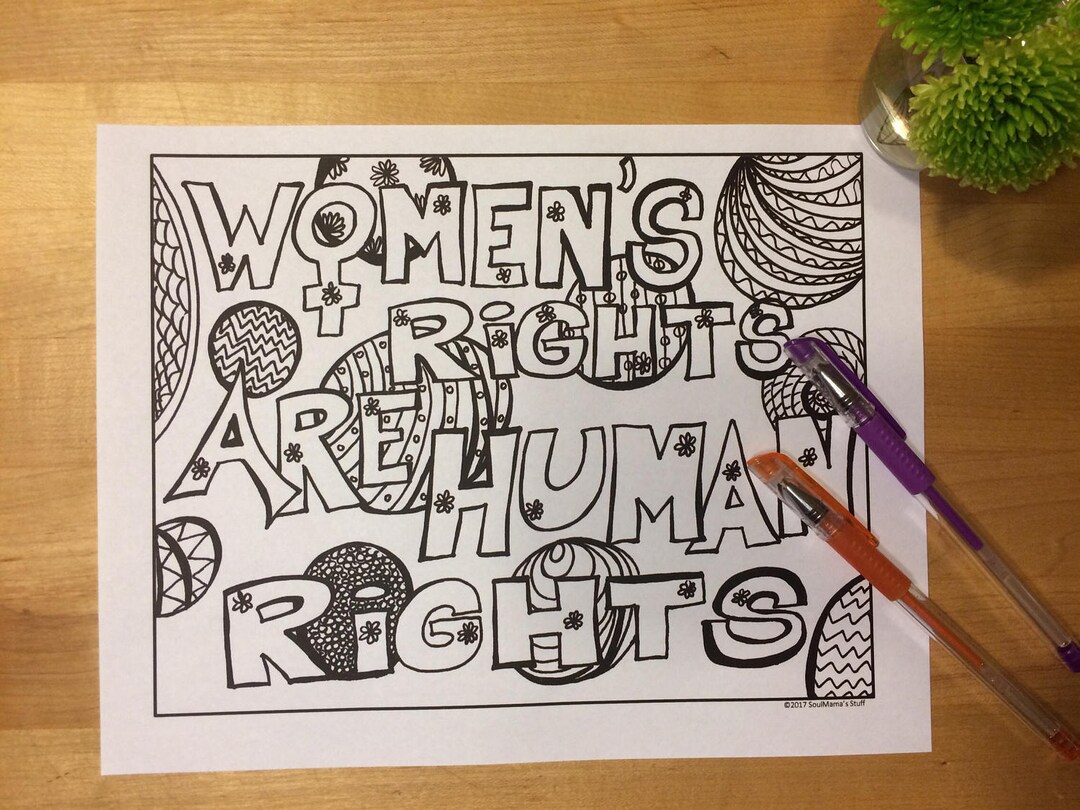 WOMEN'S
RiGHTS
ARE HUMAN
RiGHTS
©2017 SoulMama's Stuff